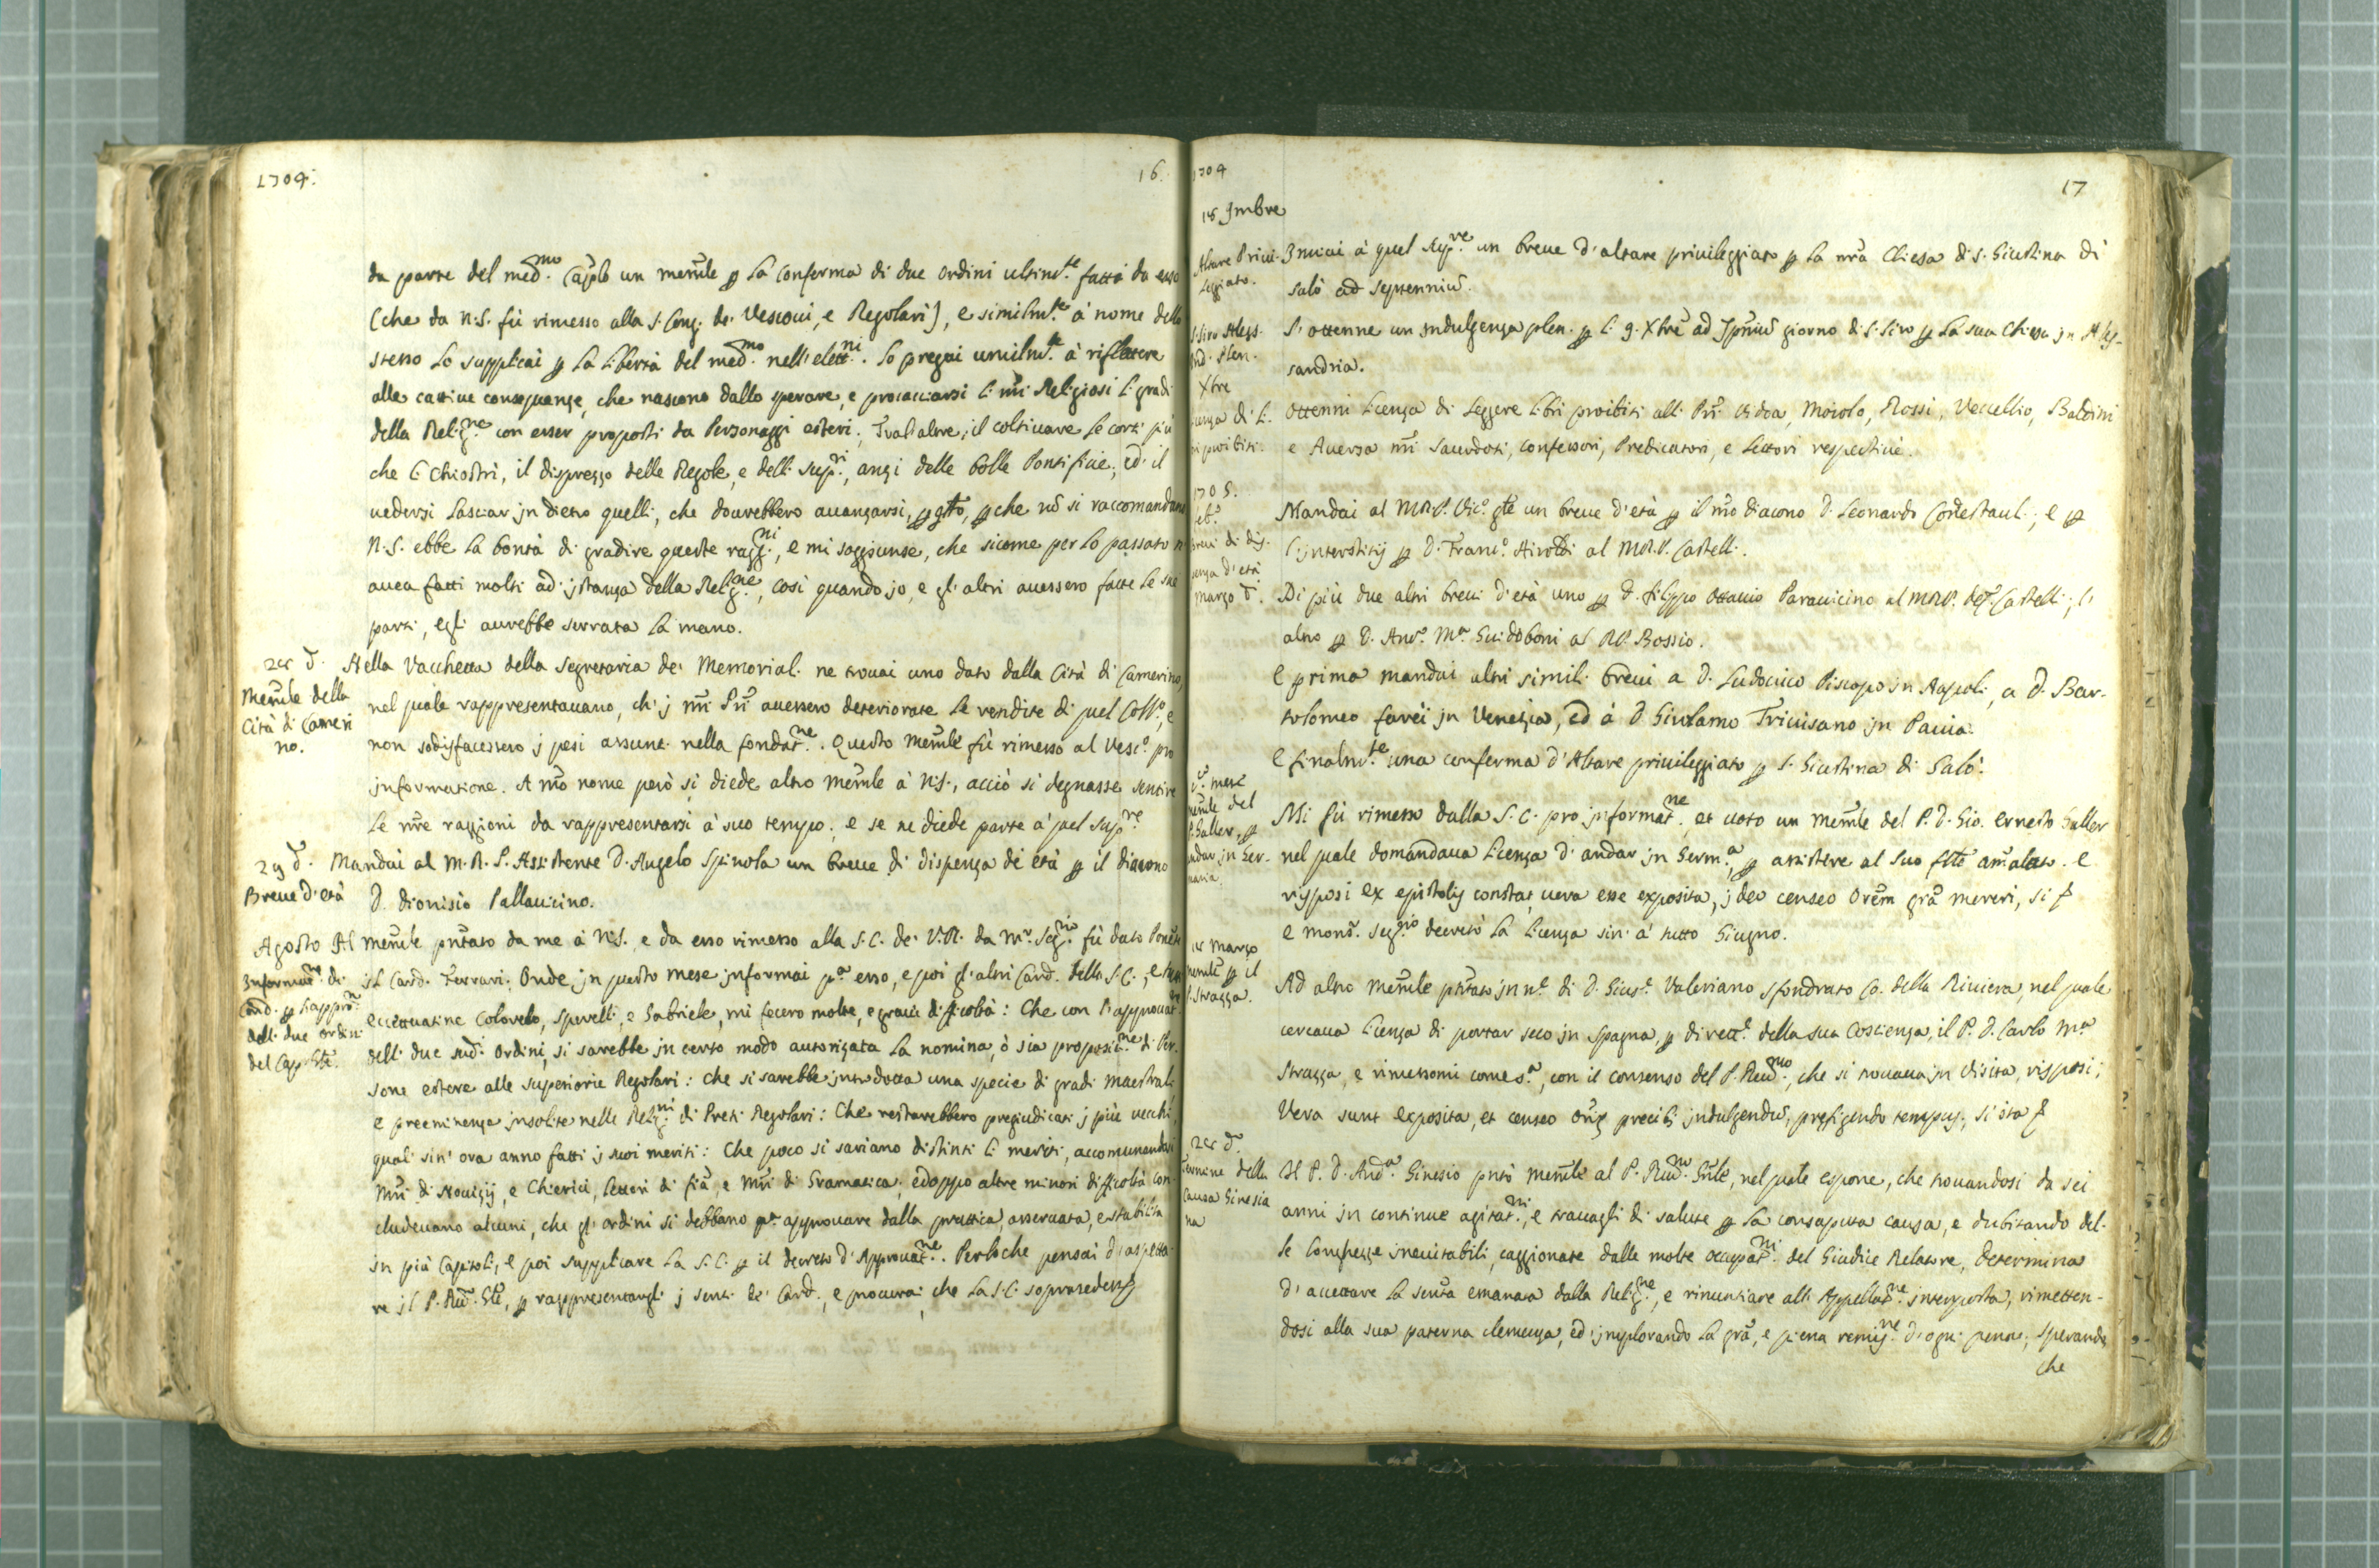 1704.
16.
da parte del med.mo Cap̃lo un mem̃le ꝑ la conferma di due ordini ultimte. fatti da esso
(che da N.S. fù rimesso alla S. Cong. de' Vescovi, e Regolari), e similmte. à nome dello
stesso lo supplicai ꝑ la libertà del med.mo nell'elett.ni. Lo pregai umilmte. à riflettere
alle cattive conseguenze, che nascono dallo sperare, e procacciarsi li nr̃i Religiosi li gradi
della Relig.ne con esser proposti da Personaggi esteri. Tralaltre, il coltivare le corti più
che li Chiostri, il disprezzo delle Regole, e delli Sup.ri, anzi delle Bolle Pontificie, ed il
vedersi lasciar jn dietro quelli, che dovrebbero avanzarsi, ꝑ qto, ꝑche nõ si raccomandano
N.S. ebbe la bontà di gradire queste ragg.ni, e mi soggiunse, che sicome per lo passato n'
avea fatti molti ad jstanza della Relig.ne, così quando jo, e gl'altri avessero fatte le sue
parti, egli avrebbe serrata la mano.
24 d.
Mem̃le della
Città di Cameri
no.
Nella Vacchetta della Segretaria de' Memoriali ne trovai uno dato dalla Città di Camerino,
nel quale rappresentavano, ch'j nr̃i Pr̃i avessero deteriorate le rendite di quel Collo, e
non sodisfacessero j pesi assunti nella fondat.ne. Questo Mem̃le fù rimesso al Vesco. pro
jnformatione. A nr̃o nome però si diede altro Mem̃le à N.S., acciò si degnasse sentire
le nr̃e raggioni da rappresentarsi à suo tempo, e se ne diede parte a' quel Sup.re
29 d.
Breve d'età
Mandai al M.R.P. Assistente D. Angelo Spinola un breve di dispenza di età ꝑ il diacono
D. Dionisio Pallavicino.
Agosto
Informat.ne di
Card. ꝑ l'appro.ne
delli due ordini
del Capitolo.
Il Mem̃le pñtato da me à N.S. e da esso rimesso alla S.C. de' V.R. da Mr. Seg.rio fù dato Ponente
jl Card. Ferrari. Onde jn questo mese jnformai pa. esso, e poi gl'altri Card. della S.C., e tutti
eccettuatine Coloredo, Sperelli, e Gabriele, mi fecero molte, e gravi difficoltà: Che con l'approvat.ne
delli due sud.i ordini, si sarebbe jn certo modo autorizata la nomina, ò sia proposit.ne di Per-
sone estere alle superiorie Regolari: che si sarebbe jntrodotta una specie di gradi maestrali
e preeminenza jnsolite nelle Relig.ni di Preti Regolari: Che restarebbero pregiudicati j più vecchi,
quali sin' ora anno fatti j suoi meriti: Che poco si sariano distinti li meriti, accomunandosi
Mr̃i di Novizij, e Chierici, Lettori di fiã, e Mr̃i di Gramatica; e doppo altre minori difficoltà con-
cludevano alcuni, che gl'ordini si debbano pa. approvare dalla prattica, osservata, e stabilita
jn più Capitoli, e poi supplicare la S.C. ꝑ il decreto d'Approvat.ne. Perloche pensai d'aspetta-
re jl P. Rm̃o Gl̃e, ꝑ rappresentargli j senti. de' Card., e procurai, che la S.C. soprasedesse
1704
17
18 9mbre
Altare Privi-
leggiato.
Inviai à quel Sup.re un breve d'altare privileggiato ꝑ la nr̃a Chiesa di S. Giustina di
Salò ad Septenniũ.
S. Siro Aless.
Ind. Plen.
S'ottenne un Indulgenza plen. ꝑ li 9. Xbre ad septenniũ giorno di S. Siro ꝑ la sua Chiesa jn Ales-
sandria.
Xbre
Licenza di li-
bri proibiti.
Ottenni licenza di leggere libri proibiti alli Pr̃i Vidoa, Moiolo, Rossi, Vecellio, Baldini
e Aversa nr̃i Sacerdoti, Confessori, Predicatori, e Lettori respectivè.
1705.
febo.
Brevi di dis-
penza d'età
Mandai al M.R.P. Vico. Gl̃e un breve d'età ꝑ il nr̃o diacono D. Leonardo Conestauli, e ꝑ
l'jnterstitij ꝑ D. Franco. Airoldi al M.R.P. Castelli.
Marzo d.
Di più due altri brevi d'età uno ꝑ D. Filippo Ottavio Paravicino al M.R.P. Castelli, l'
altro ꝑ D. Anto. Ma. Guidoboni al R.P. Bossio.
E prima mandai altri simili brevi a D. Ludovico Piscopo jn Napoli, a D. Bar-
tolomeo Farèi jn Venezia, ed à D. Girolamo Trivisano jn Pavia.
E finalmte. una conferma d'Altare privileggiato ꝑ S. Giustina di Salò.
d. mese
Mem̃le del
P. Saller, ꝑ
andar jn Ger-
mania
Mi fù rimesso dalla S.C. pro jnformat.ne et voto un Mem̃le del P. D. Gio. Ernesto Saller
nel quale domandava licenza d'andar jn Germa., ꝑ assistere al suo fr̃llo amalato. E
risposi ex epistolis constat vera esse exposita, jdeo censeo Or̃em gr̃a mereri, si &
e Monsr. Seg.rio decretò la licenza sin' a' tutto Giugno.
14 Marzo
Mem̃le ꝑ il
P. Strazza.
Ad altro Mem̃le pñtato jn ne. di D. Gius.e Valeriano Sfondrato Co. della Riviera, nel quale
cercava licenza di portar seco jn Spagna, ꝑ dirett.e della sua Coscienza, il P. D. Carlo Ma.
Strazza, e rimessomi come sa., con il consenso del P. Rm̃o, che si trovava jn visita, risposi;
Vera sunt exposita, et censeo Or̃is precib. jndulgendũ, prefigendo tempus, si ita &
24 d.
Termine della
causa Ginesia
na
Il P. D. Anda. Ginesio pñtò Mem̃le al P. Rm̃o Gñle, nel quale espone, che trovandosi da sei
anni jn continue agitat.ni, e travagli di salute ꝑ la consaputa causa, e dubitando del-
le longhezze inevitabili, caggionate dalle molte occupat.ni del Giudice Relatore, determina
d'accettare la sent̃a emanata dalla Relig.ne, e rinuntiare all'Appellat.ne jnterposta, rimetten-
dosi alla sua paterna clemenza, ed jmplorando la gr̃a, e piena remis.ne d'ogni pena, sperando
che